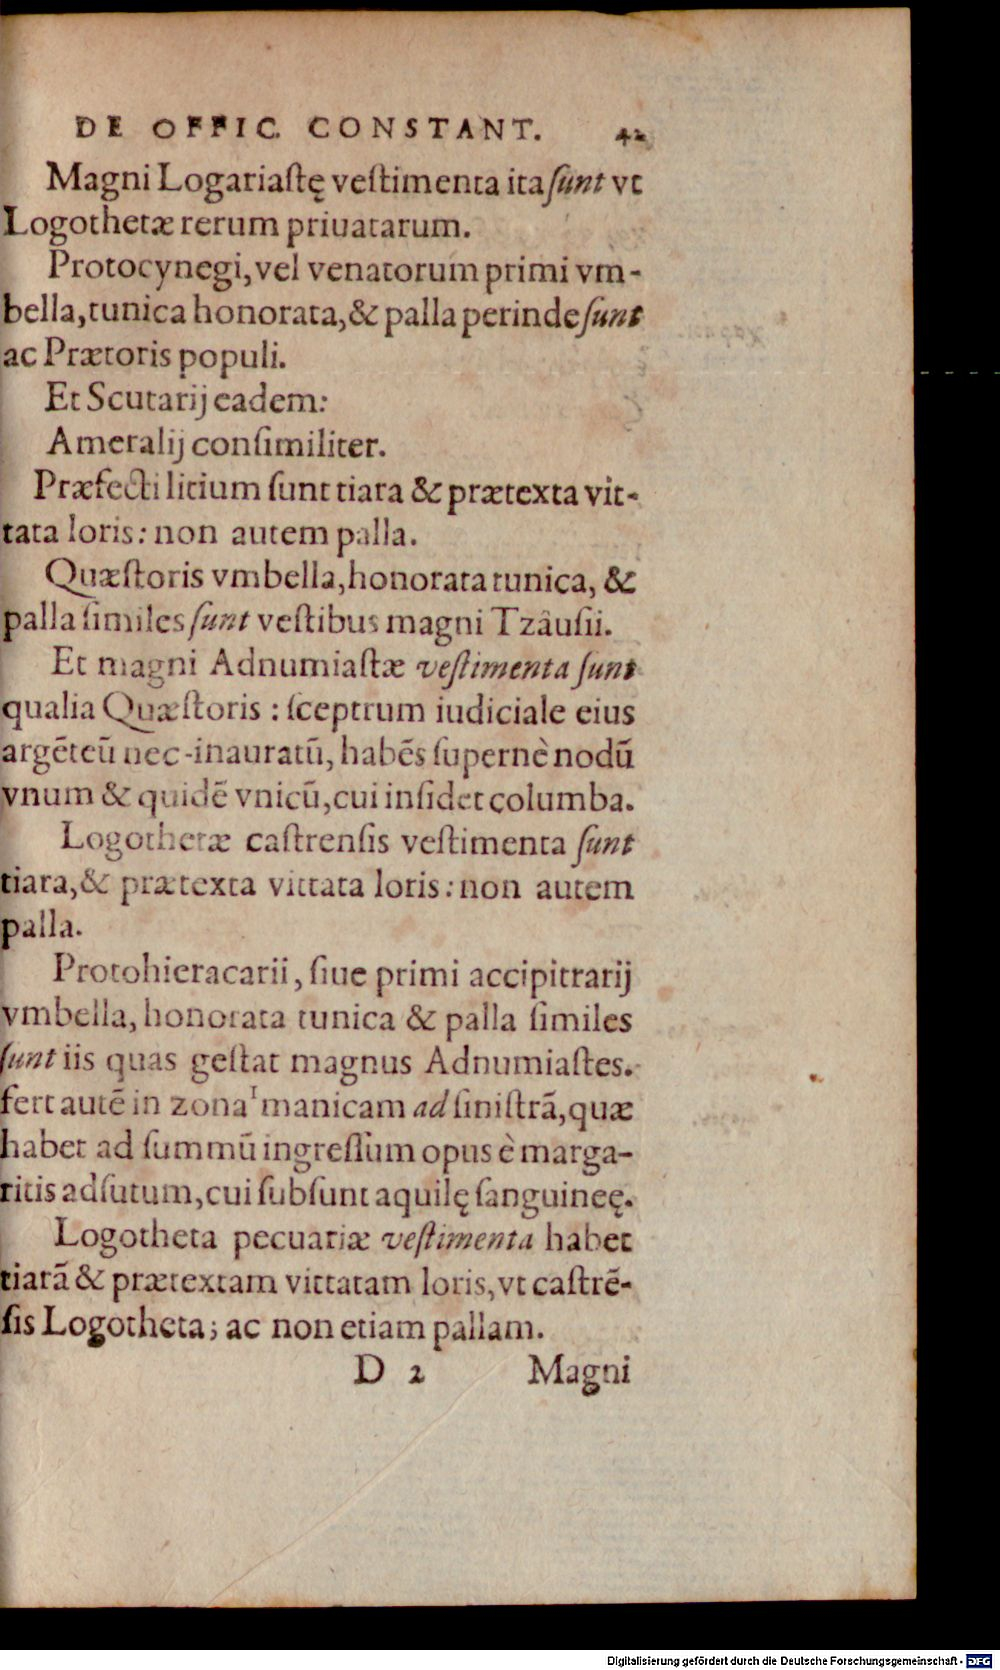 DE OFFIC. CONSTANT. 42
Magni Logariaſtę veſtimenta ita ſunt vt
Logothetæ rerum priuatarum.
Protocynegi, vel venatorum primi vm-
bella, tunica honorata, & palla perinde ſunt
ac Prætoris populi.
Et Scutarij eadem:
Ameralij conſimiliter.
Præfecti litium ſunt tiara & prætexta vit-
tata loris: non autem palla.
Quæſtoris vmbella, honorata tunica, &
palla ſimiles ſunt veſtibus magni Tzâuſii.
Et magni Adnumiaſtæ veſtimenta ſunt
qualia Quæſtoris : ſceptrum iudiciale eius
argẽteũ nec-inauratũ, habẽs ſupernè nodũ
vnum & quidẽ vnicũ, cui inſidet columba.
Logothetæ caſtrenſis veſtimenta ſunt
tiara, & prætexta vittata loris: non autem
palla.
Protohieracarii, ſiue primi accipitrarij
vmbella, honorata tunica & palla ſimiles
ſunt iis quas geſtat magnus Adnumiaſtes.
fert autẽ in zona manicam ad ſiniſtrã, quæ
habet ad ſummũ ingreſſum opus è marga-
ritis adſutum, cui ſubſunt aquilę ſanguineę.
Logotheta pecuariæ veſtimenta habet
tiarã & prætextam vittatam loris, vt caſtrẽ-
ſis Logotheta; ac non etiam pallam.
D 2 Magni
Digitalisierung gefördert durch die Deutsche Forschungsgemeinschaft - DFG